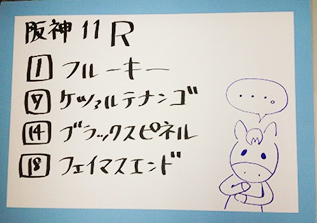 阪神11R
1 フルーキー
7 ケツァルテナンゴ
14 ブラックスピネル
18 フェイマスエンド
・・・。